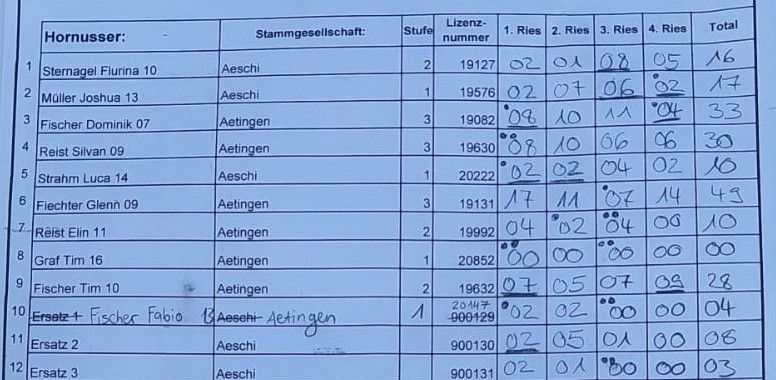 Hornusser: - Stammgesellschaft: Stufe Lizenz-nummer 1. Ries 2. Ries 3. Ries 4. Ries Total
1 Sternagel Flurina 10 Aeschi 2 19127 02 01 08 05 16
2 Müller Joshua 13 Aeschi 1 19576 02 07 06 02 17
3 Fischer Dominik 07 Aetingen 3 19082 08 10 11 04 33
4 Reist Silvan 09 Aetingen 3 19630 08 10 06 06 30
5 Strahm Luca 14 Aeschi 1 20222 02 02 04 02 10
6 Fiechter Glenn 09 Aetingen 3 19131 17 11 07 14 49
7 Reist Elin 11 Aetingen 2 19992 04 02 04 00 10
8 Graf Tim 16 Aetingen 1 20852 00 00 00 00 00
9 Fischer Tim 10 Aetingen 2 19632 07 05 07 09 28
10 Ersatz 1 Fischer Fabio 13 Aeschi Aetingen 1 20147 900129 02 02 00 00 04
11 Ersatz 2 Aeschi 900130 02 05 01 00 08
12 Ersatz 3 Aeschi 900131 02 01 00 00 03